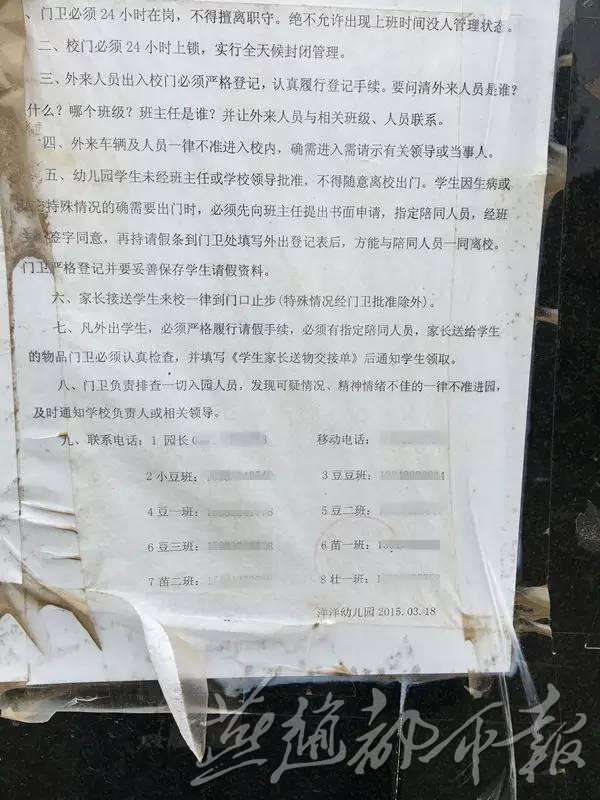 、门卫必须24小时在岗，不得擅离职守。绝不允许出现上班时间没人管理状态。
二、校门必须24小时上锁，实行全天候封闭管理。
三、外来人员出入校门必须严格登记，认真履行登记手续。要问清外来人员是谁？
什么？哪个班级？班主任是谁？并让外来人员与相关班级、人员联系。
四、外来车辆及人员一律不准进入校内，确需进入需请示有关领导或当事人。
五、幼儿园学生未经班主任或学校领导批准，不得随意离校出门。学生因生病或
特殊情况的确需要出门时，必须先向班主任提出书面申请，指定陪同人员，经班
签字同意，再持请假条到门卫处填写外出登记表后，方能与陪同人员一同离校。
门卫严格登记并要妥善保存学生请假资料。
六、家长接送学生来校一律到门口止步(特殊情况经门卫批准除外)。
七、凡外出学生，必须严格履行请假手续，必须有指定陪同人员，家长送给学生
的物品门卫必须认真检查，并填写《学生家长送物交接单》后通知学生领取。
八、门卫负责排查一切入园人员，发现可疑情况、精神情绪不佳的一律不准进园，
及时通知学校负责人或相关领导。
九、联系电话：1 园长 移动电话：
2 小豆班： 3 豆豆班：
4 豆一班： 5 豆二班：
6 豆三班： 6 苗一班：
7 苗二班： 8 壮一班：
洋洋幼儿园 2015.03.18
燕赵都市报